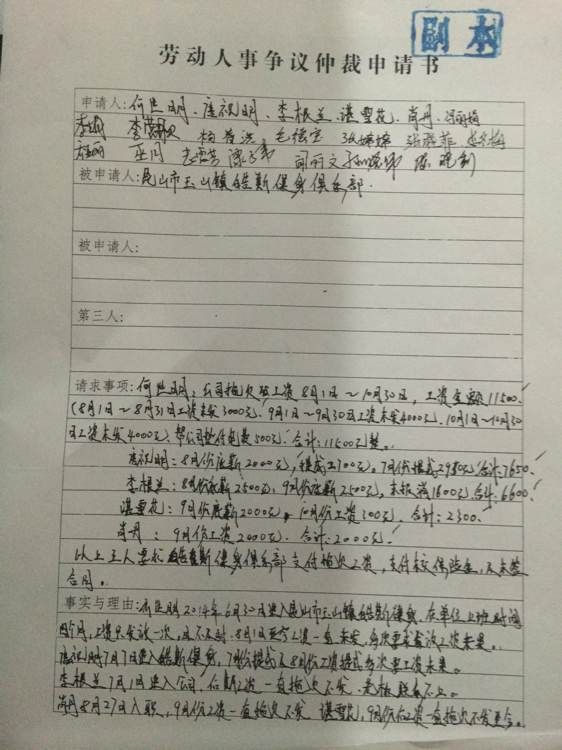 副本
劳动人事争议仲裁申请书
申请人:何 明、唐祝明、李根兰、湛雪花、肖丹、
李 李 杨 张婷婷 张 菲 梅
巫 陈 司 文 陈
被申请人:昆山市玉山镇皓斯健身俱乐部.
被申请人:
第三人:
请求事项:何 明:公司拖欠 工资8月1日~10月30日,工资金额11500.
(8月1日~8月31日工资未发3000元、9月1日~9月30日工资未发4000元、10月1日~10月30
日工资未发4000元、帮公司垫付 费500元.合计:11500元整。
唐祝明:8月份底薪2000元,提成2700元,7月份提成2980元合计:7650.
李根兰:8月份底薪2500元,9月份底薪2500元,未报销1600元合计:6600.
湛雪花:9月份底薪2000元,10月份工资300元,合计:2300.
肖丹:9月份工资2000元.合计:2000元.
以上五人要求 皓斯健身俱乐部支付拖欠工资,支付 保险金,及未签
合同。
事实与理由: 2014年6月30日进入昆山市玉山镇皓斯健身,在单位上班时间
四个月,工资只发放一次,且不及时.8月1日至今工资一直未发,多次要求发放工资未果。
唐祝明7月7日进入皓斯健身,7月份提成及8月份工资提成多次要工资未果。
李根兰7月1日进入公司,后期工资一直拖欠不发.老板联系不上。
肖丹8月27日入职,9月份工资一直拖欠不发 湛雪花,9月份后工资一直拖欠不发至今。